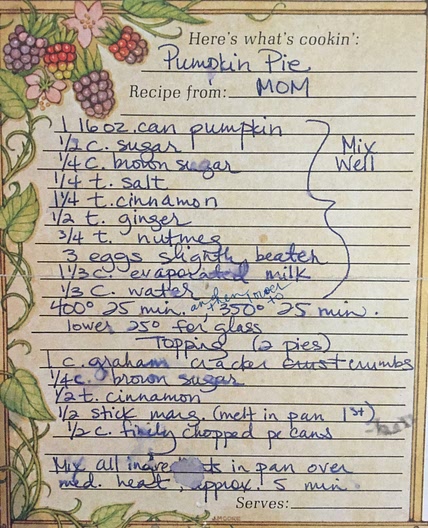 Here's what's cookin':
Pumpkin Pie
Recipe from: MOM
1 16 oz. can pumpkin
1/2 c. sugar
Mix
1/4 c. brown sugar
Well
1/4 t. salt
1 1/4 t. cinnamon
1/2 t. ginger
3/4 t. nutmeg
3 eggs slightly beaten
1 1/3 c. evaporated milk
1/3 c. water
400° 25 min. and then lower to 350° 25 min.
lower 25° for glass
Topping (2 pies)
1 c. graham cracker crust crumbs
1/4 c. brown sugar
1/2 t. cinnamon
1/2 stick marg. (melt in pan 1st)
1/2 c. finely chopped pecans
Mix all ingredients in pan over
med. heat, approx. 5 min.
Serves: